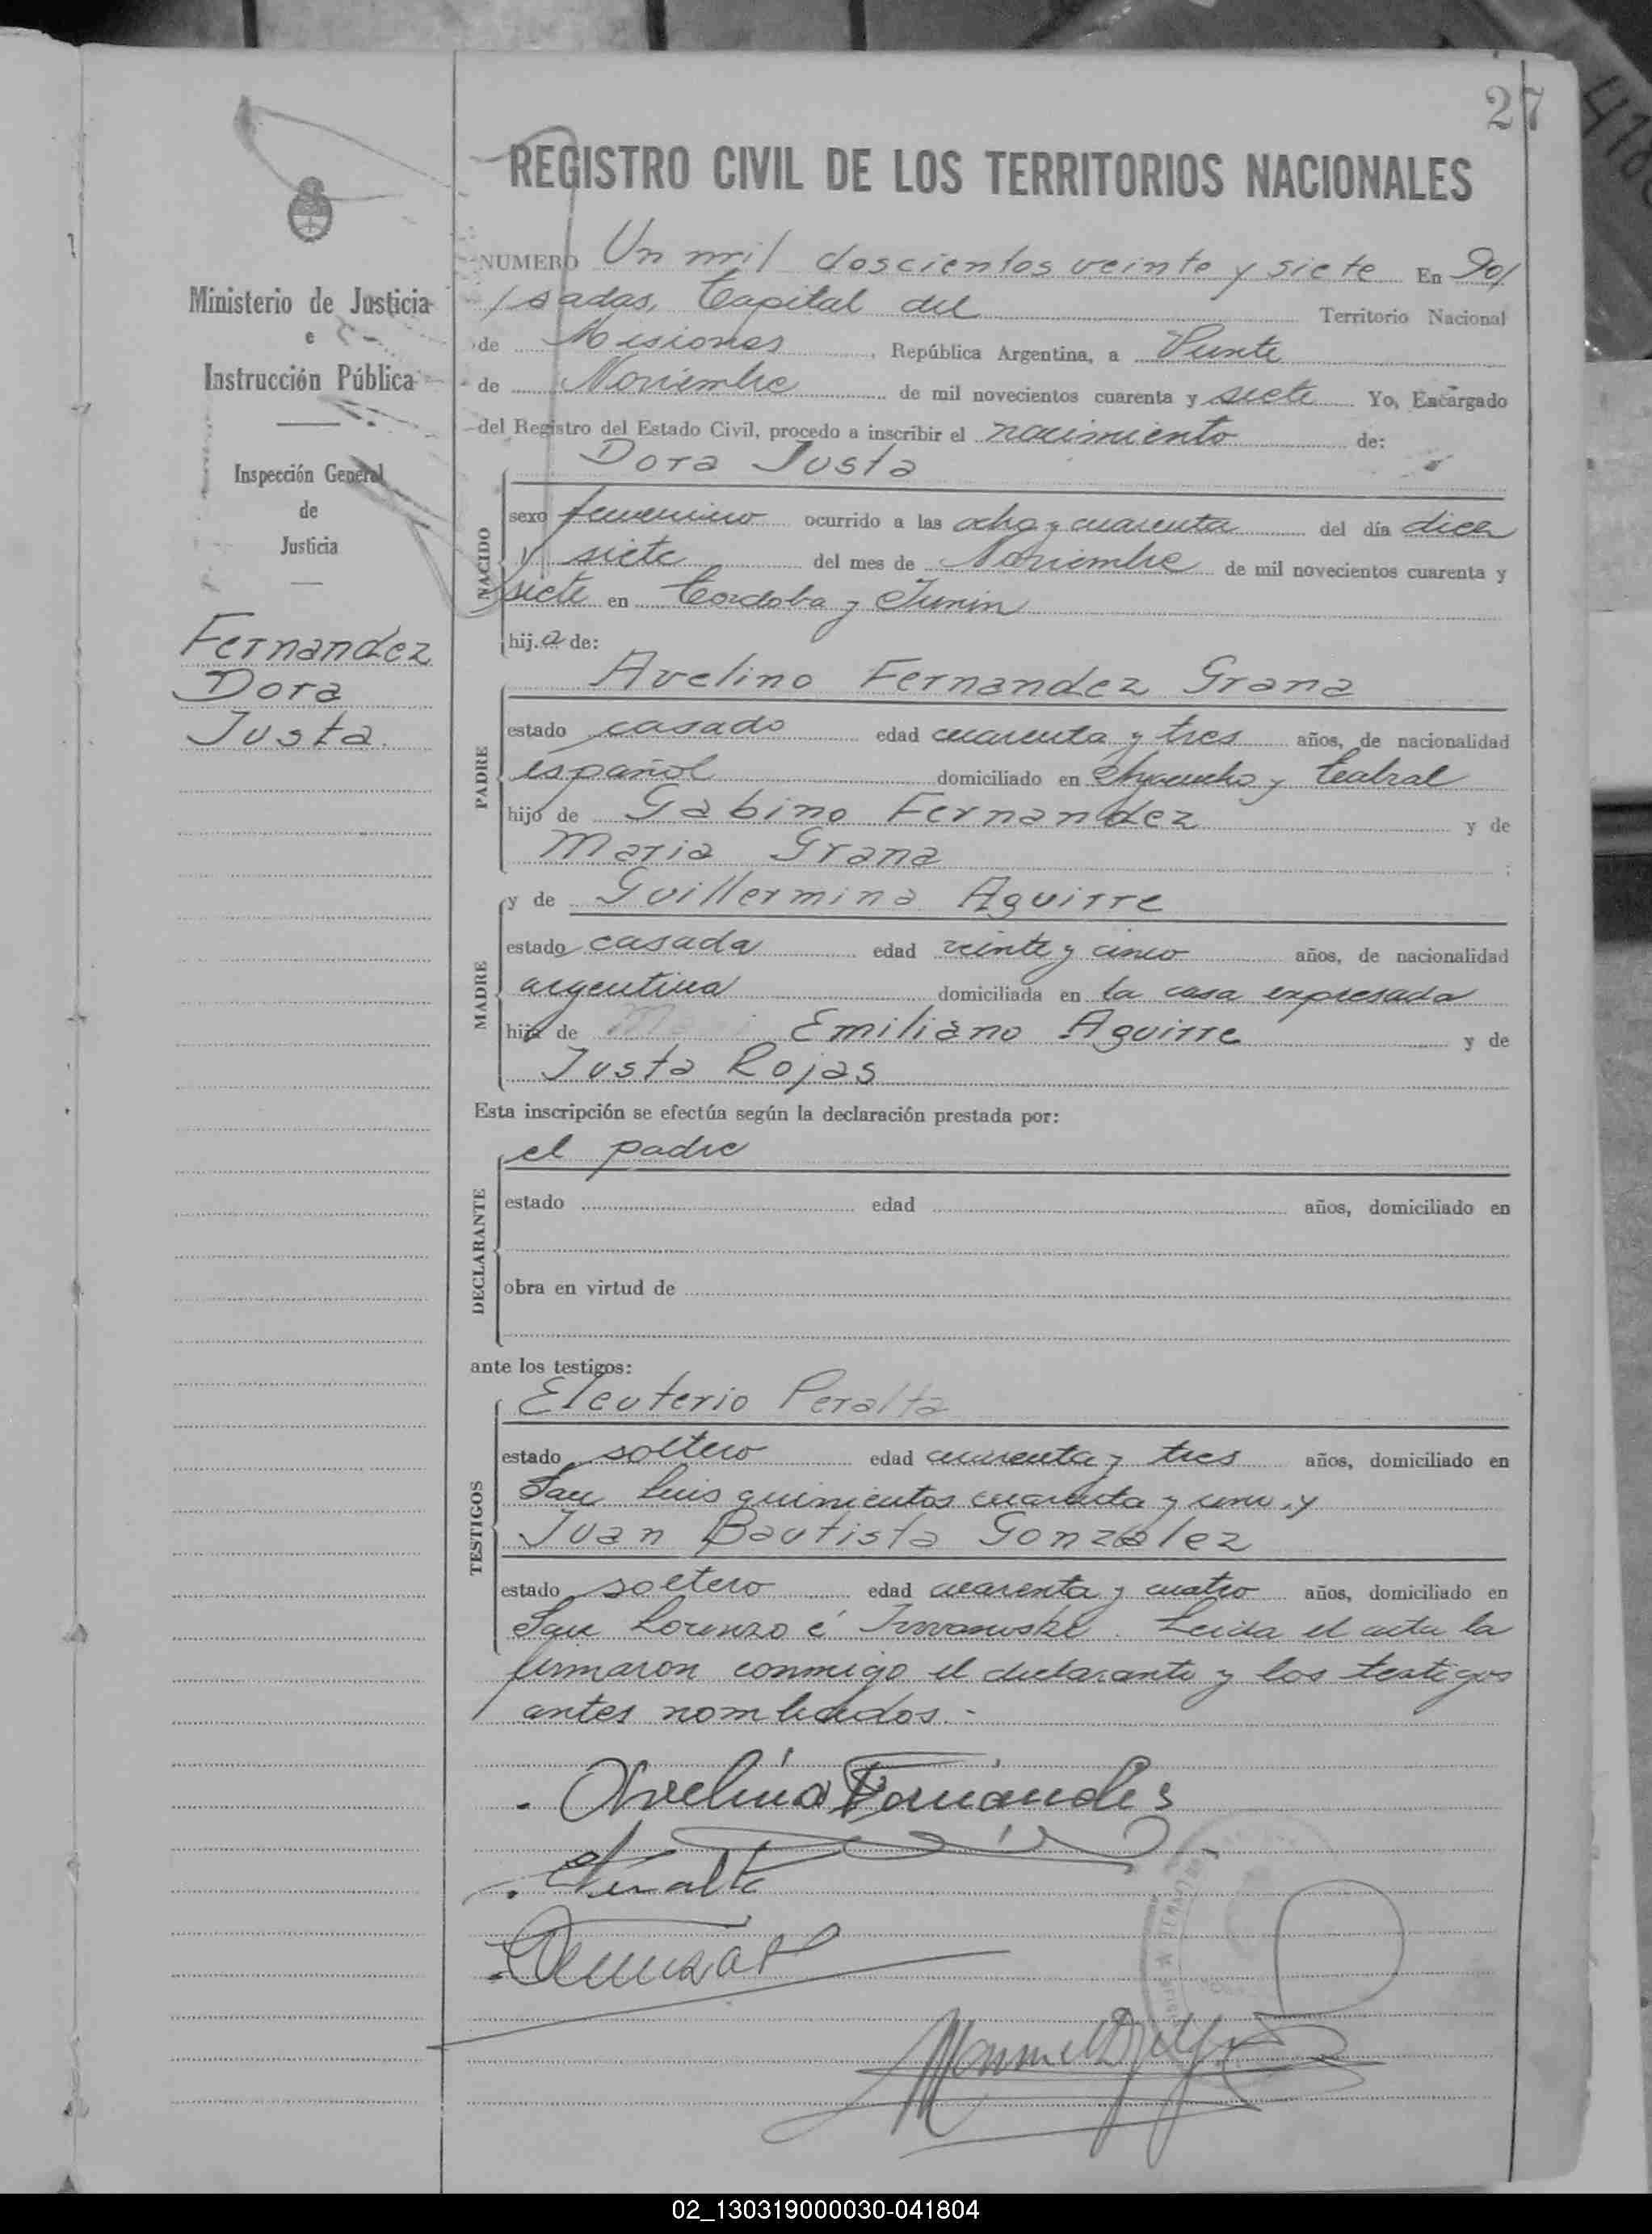 27
REGISTRO CIVIL DE LOS TERRITORIOS NACIONALES
Ministerio de Justicia
e
Instrucción Pública
Inspección General
de
Justicia
Fernandez
Dora
Justa.
NUMERO Un mil doscientos veinte y siete En Po/
/sadas, Capital del Territorio Nacional
de Misiones, República Argentina, a Veinte
de Noviembre de mil novecientos cuarenta y siete Yo, Encargado
del Registro del Estado Civil, procedo a inscribir el nacimiento de:
Dora Justa
NACIDO
sexo femenino ocurrido a las ocho y cuarenta del día diez
y siete del mes de Noviembre de mil novecientos cuarenta y
siete en Cordoba y Junin
hij.a de:
PADRE
Avelino Fernandez Grana
estado casado edad cuarenta y tres años, de nacionalidad
español domiciliado en Ayacucho y
hijo de Gabino Fernandez y de
Maria Grana
MADRE
y de Guillermina Aguirre
estado casada edad veinte y cinco años, de nacionalidad
argentina domiciliada en la casa expresada
hija de Emiliano Aguirre y de
Justa Rojas
Esta inscripción se efectúa según la declaración prestada por:
DECLARANTE
el padre
estado edad años, domiciliado en
obra en virtud de
ante los testigos:
TESTIGOS
Eleuterio Peralta
estado soltero edad cuarenta y tres años, domiciliado en
San Luis quinientos cuarenta y uno, y
Juan Bautista Gonzalez
estado soltero edad cuarenta y cuatro años, domiciliado en
San Lorenzo é . Leida el acta la
firmaron conmigo el declarante y los testigos
antes nombrados.-
Avelino Fernandes
Peralta
02_130319000030-041804